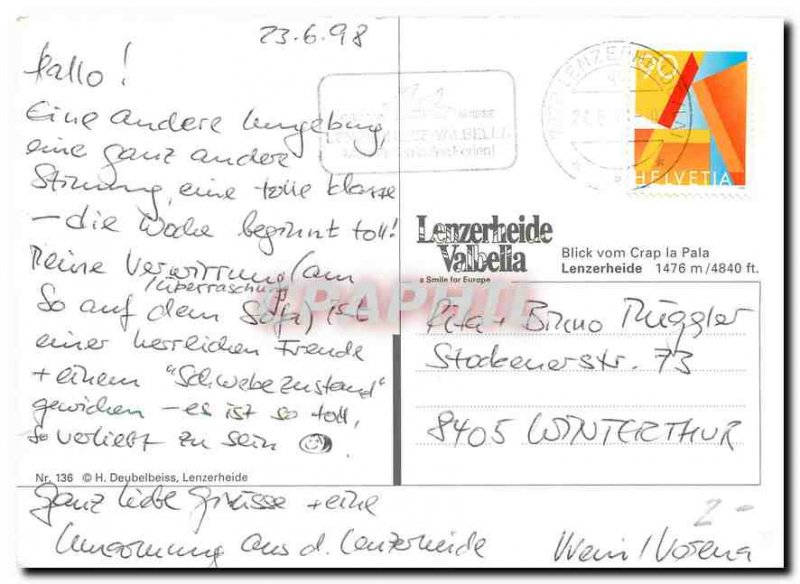 23.6.98
Hallo!
Eine andere Umgebung,
eine ganz andere
Stimmung, eine tolle Klasse
– die Woche beginnt toll!
Meine Verwirrung (am
/Überraschung
So auf dem Sofa) ist
einer herrlichen Freude
+ einem "Schwebezustand"
gewichen – es ist so toll,
so verliebt zu sein
Nr. 136 © H. Deubelbeiss, Lenzerheide
Ganz liebe Grüsse + eine
Umarmung aus d. Lenzerheide
HELVETIA
90
Lenzerheide
Valbella
a Smile for Europe
Blick vom Crap la Pala
Lenzerheide 1476 m/4840 ft.
Rita + Bruno Müggler
Stockenerstr. 73
8405 WINTERTHUR
2.-